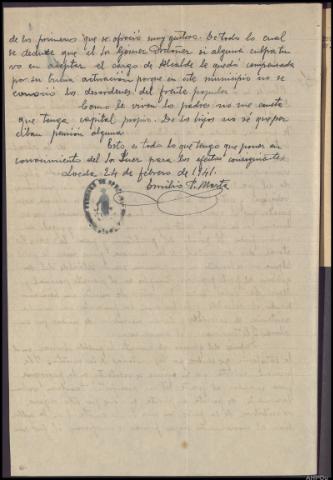 de los primeros que se ofreció muy gustoso. De todo lo cual
se deduce que el Sr Gómez Ordóñez si alguna culpa tu-
vo en aceptar el cargo de Alcalde le quedó compensada
por su buena actuación porque en este municipio no se
conoció los desordenes del frente popular
Como le viven los padres no me consta
que tenga capital propio. De los hijos no sé que per-
ciban pensión alguna.
Esto es todo lo que tengo que poner en
conocimiento del Sr Juez para los efectos consiguientes
24 de febrero de 1941.
Emilio
AHPOu